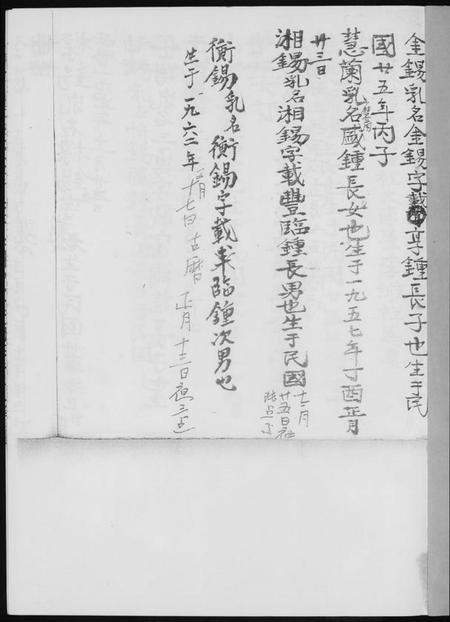 金錫乳名金錫字載享鍾長子也生于民
國廿五年丙子
慧蘭乳名國鍾長女也生于一九五七年丁酉正月
廿三日
湘錫乳名湘錫字載豐臨鍾長男也生于民國
十二月
廿五日
衡錫乳名衡錫字載車臨鍾次男也
生于一九六二年 月十七日古曆正月十三日夜三点